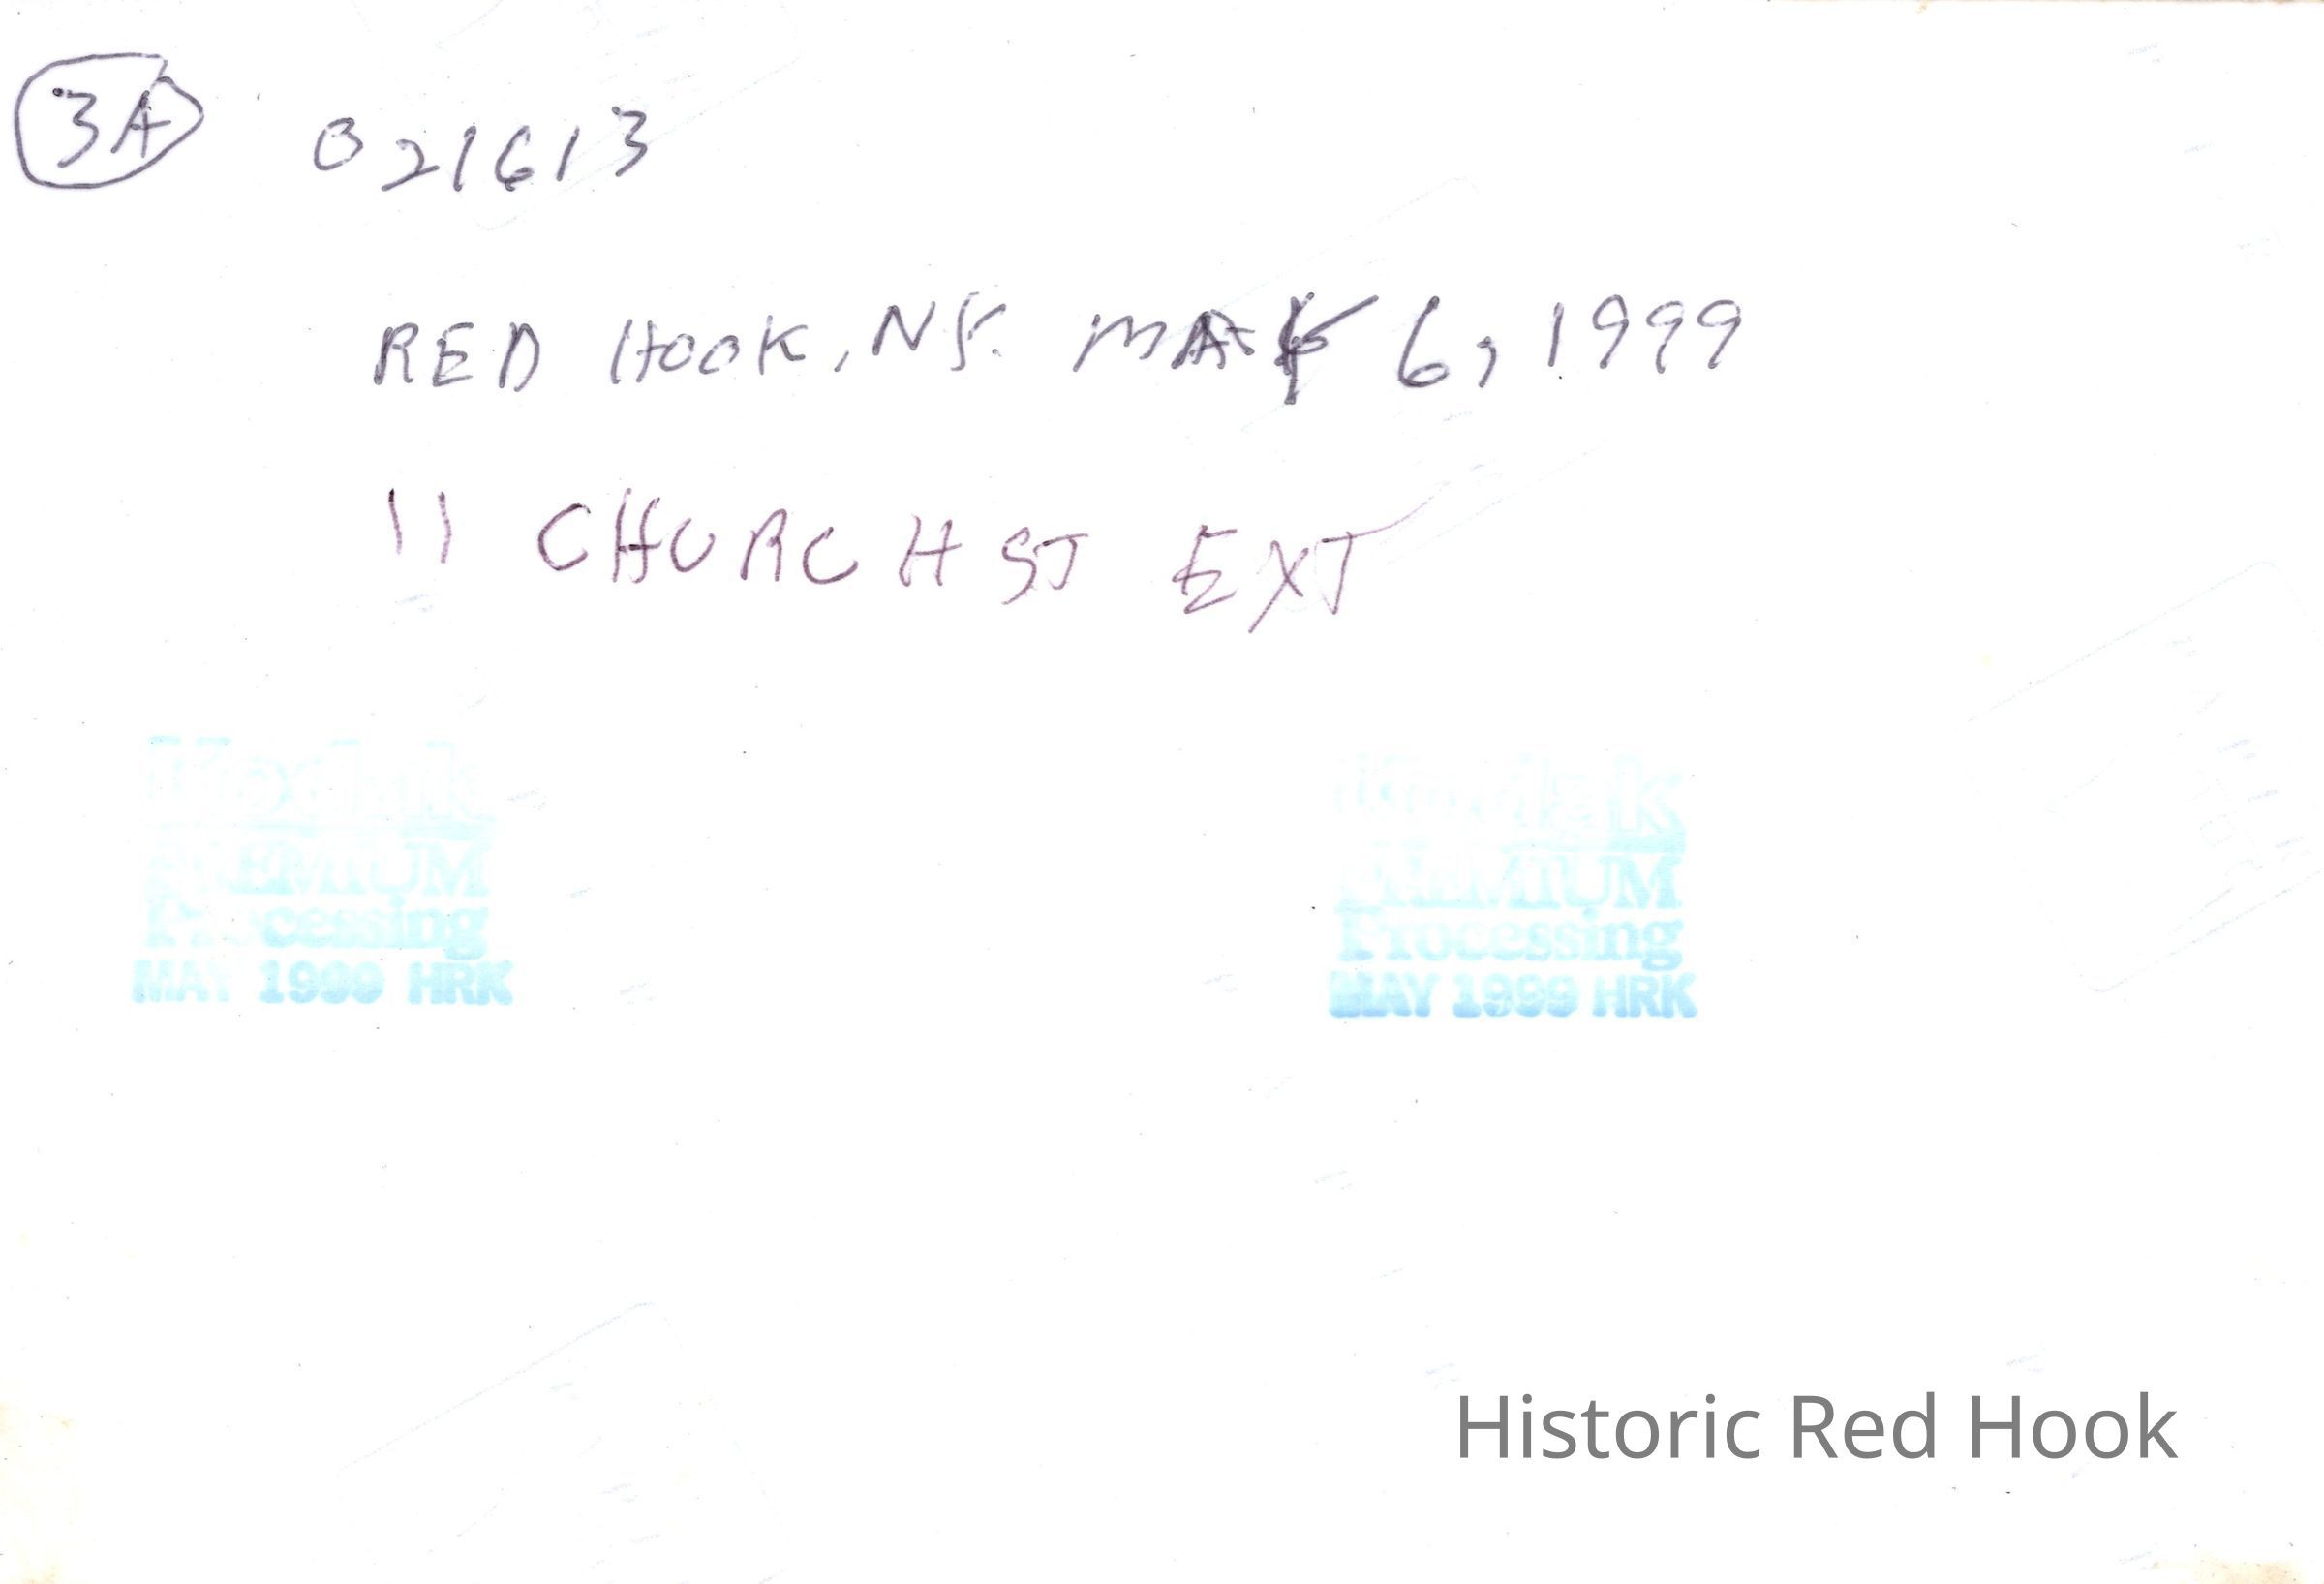 3A 021613
RED HOOK, NY. MAY 6, 1999
11 CHURCH ST EXT
Kodak
PREMIUM
Processing
MAY 1999 HRK
Kodak
PREMIUM
Processing
MAY 1999 HRK
Historic Red Hook